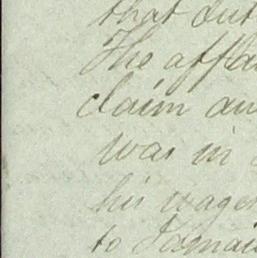 that out
The affla
claim an
was in
his wages
to Jamai